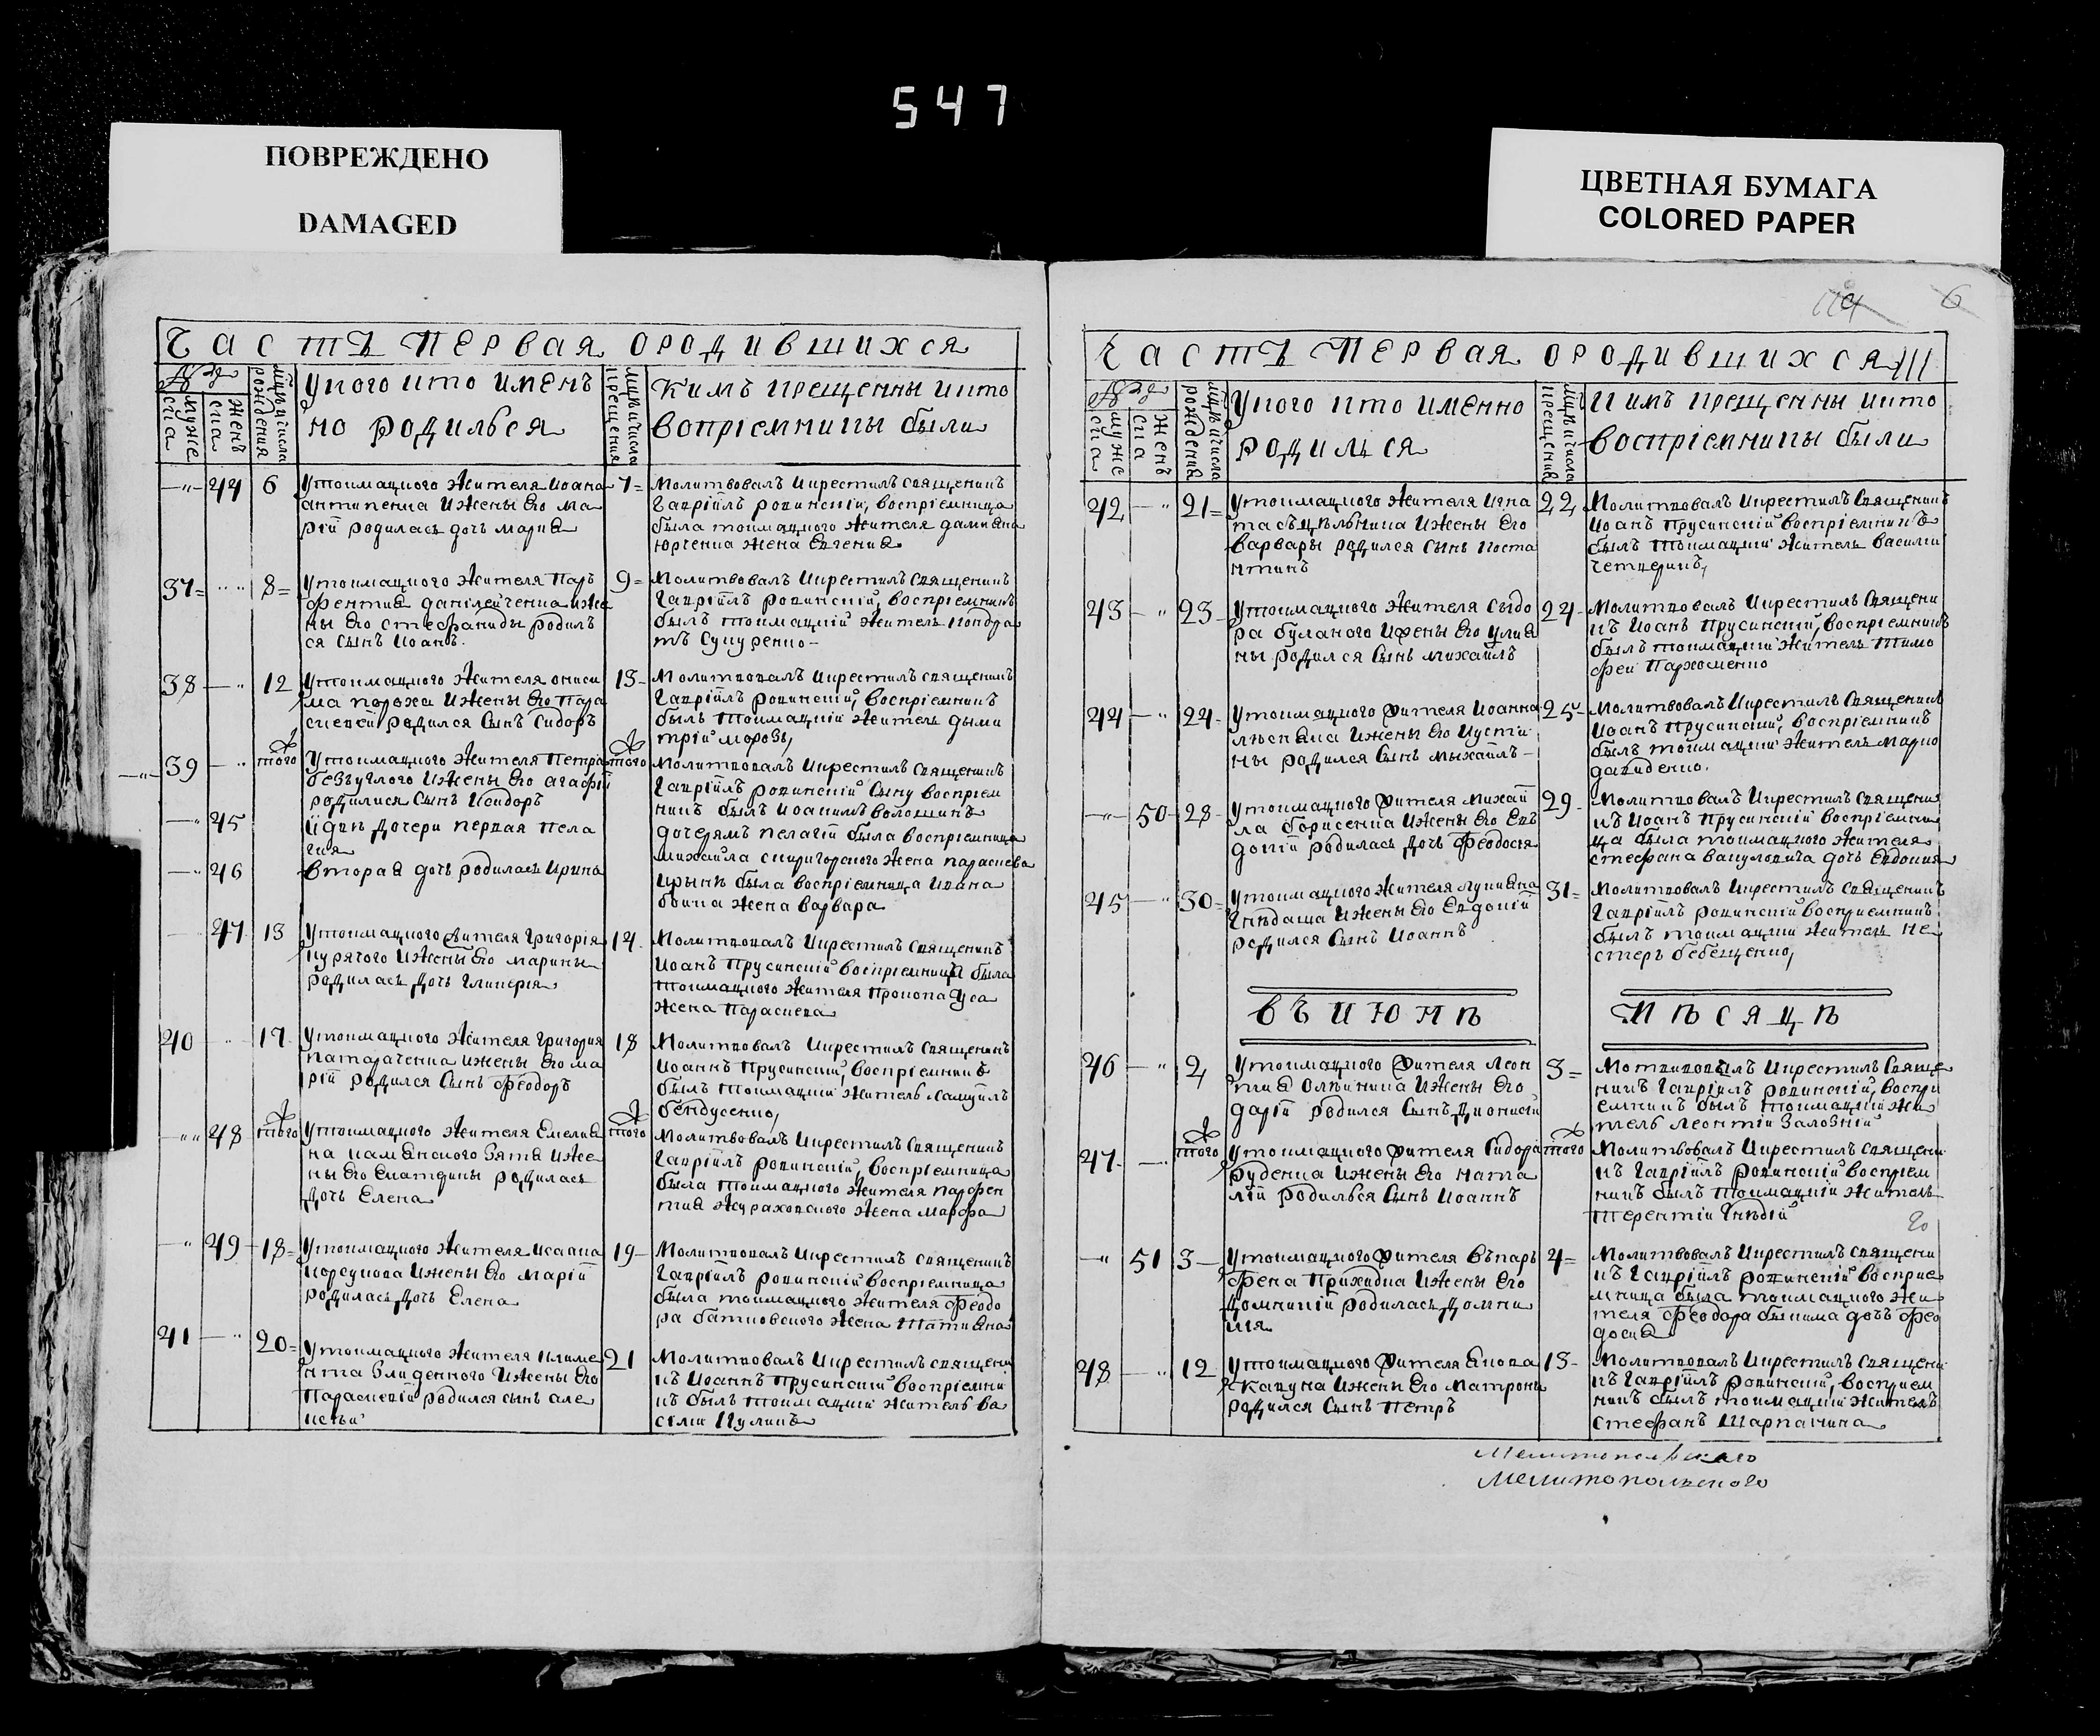 547
ПОВРЕЖДЕНО
DAMAGED
ЦВЕТНАЯ БУМАГА
COLORED PAPER
6
ЧАСТЬ ПЕРВАЯ ОРОДИВШИХСЯ
муже ска
женъ ска
рождения
Укого кто именъ
но родилься
крещения
Кимъ крещенны икто
вопріемники были
44 6 Утокмацкого жителя Иоана 7
антипенка Ижены Его ма
рій родилась дочь мария
Молитвовалъ Икрестилъ священикъ
Гавріилъ ровинскій, воспріемница
была токмацкого жителя дамияна
юрченка жена Евгения
37 8 Утокмацкого жителя Пар 9
фентия данілейченка ижи
ны Его стефаниды родилъ
ся сынъ Иоанъ
Молитвовалъ Икрестилъ священикъ
Гавріилъ ровинскій, воспріемникъ
былъ токмацкій житель кондра
тъ Сукуренко
38 12 Утокмацкого жителя ониси 13
ма порохи Ижены Его Пара
скевей родился Сынъ Сидоръ
Молитвовалъ Икрестилъ священикъ
Гавріилъ ровинскій, воспріемникъ
былъ токмацкій житель дыми
трій морозъ
39 того Утокмацкого жителя Петра того
безуглого Ижены Его агафій
родилися Сынъ Исидоръ
45 Идвѣ дочери первая пела
гия
46 вторая дочь родилась Ирина
Молитвовалъ Икрестилъ священикъ
Гавріилъ ровинскій Сыну воспріем
никъ былъ Иоакимъ волошинъ
дочерямъ пелагій была воспріемница
михаила жена параскева
Ирынѣ была воспріемница Ивана
жена варвара
47 13 Утокмацкого жителя Григорія 14
курячого Ижены Его марины
родилась дочь Гликерия
Молитвовалъ Икрестилъ священикъ
Иоанъ Прусинскій воспріемница была
токмацкого жителя Прокопа Уса
жена Параскева
40 17 Утокмацкого жителя Григория 18
Ижены Его ма
рій родился сынъ Феодоръ
Молитвовалъ Икрестилъ священикъ
Иоаннъ Прусинскій, воспріемникъ
былъ токмацкій житель Самуилъ
бендусенко
48 того Утокмацкого жителя Емелия того
на камянского зятя Иже
ны Его Екатерины родилась
дочь Елена
Молитвовалъ Икрестилъ священикъ
Гавріилъ ровинскій, воспріемница
была токмацкого жителя парфен
тия жураховского жена Марфа
49 18 Утокмацкого жителя Исаака 19
корсунова Ижены Его Марій
родилась дочь Елена
Молитвовалъ Икрестилъ священикъ
Гавріилъ ровинскій воспріемница
была токмацкого жителя феодо
ра батковского жена татияна
41 20 Утокмацкого жителя климе 21
нта Ижены Его
Параскевій родился сынъ але
ксѣй
Молитвовалъ Икрестилъ священи
къ Иоаннъ Прусинскій воспріемни
къ былъ токмацкій житель ва
силій Куликъ
ЧАСТЬ ПЕРВАЯ ОРОДИВШИХСЯ
муже ска
женъ ска
рождения
Укого кто именно
родился
крещения
Кимъ крещенны икто
воспріемники были
42 21 Утокмацкого жителя Игна 22
та Ижены Его
варвары родился сынъ коста
нтинъ
Молитвовалъ Икрестилъ Священикъ
Иоанъ Прусинскій воспріемникъ
былъ токмацкій житель василій
четверикъ
43 23 Утокмацкого жителя Сидо 24
ра буланого Ижены Его улия
ны родился Сынъ михаилъ
Молитвовалъ Икрестилъ Священи
къ Иоанъ Прусинскій, воспріемникъ
былъ токмацкій житель тимо
фей Пархоменко
44 24 Утокмацкого жителя Иоанна 25
лѣсняка Ижены Его Иусти
ны родился Сынъ мыхаилъ
Молитвовалъ Икрестилъ Священикъ
Иоанъ Прусинскій, воспріемникъ
былъ токмацкій житель марко
давиденко
50 28 Утокмацкого жителя михаи 29
ла борисенка Ижены Его Евъ
докій родилась дочь феодосия
Молитвовалъ Икрестилъ Священи
къ Иоанъ Прусинскій воспріемни
ца была токмацкого жителя
стефана вакуловича дочь Евдокия
45 30 Утокмацкого жителя лукияна 31
Гнѣдаша Ижены Его Евдокій
родился сынъ Иоаннъ
Молитвовалъ Икрестилъ священикъ
Гавріилъ ровинскій воспріемникъ
былъ токмацкій житель не
стеръ бебещенко
ВЪ ИЮНѢ МѢСЯЦѢ
46 2 Утокмацкого жителя Леон 3
тия олѣйника Ижены Его
дарій родился сынъ дионисій
Икрестилъ Свяще
никъ Гавріилъ ровинскій, воспрі
емникъ былъ токмацкій жи
тель леонтій Залозній
47 того Утокмацкого жителя Сидора того
Руденка Ижены Его ната
лій родилься сынъ Иоаннъ
Молитвовалъ Икрестилъ священи
къ Гавріилъ ровинскій воспріем
никъ былъ токмацкій житель
Терентій Гнѣдій
51 3 Утокмацкого жителя Въпарь 4
фена Приходка Ижены Его
домникій родилась домни
кия
Молитвовалъ Икрестилъ священи
къ Гавріилъ ровинскій воспріе
мница была токмацкого жи
теля феодора быкима дочь фео
досия
48 12 Утокмацкого жителя якова 13
кавуна Ижены Его Матроны
родился сынъ Петръ
Молитвовалъ Икрестилъ священи
къ Гавріилъ ровинскій, воспріем
никъ былъ токмацкій житель
стефанъ Шарпанина
Мелитопольскаго
Мелитопольского